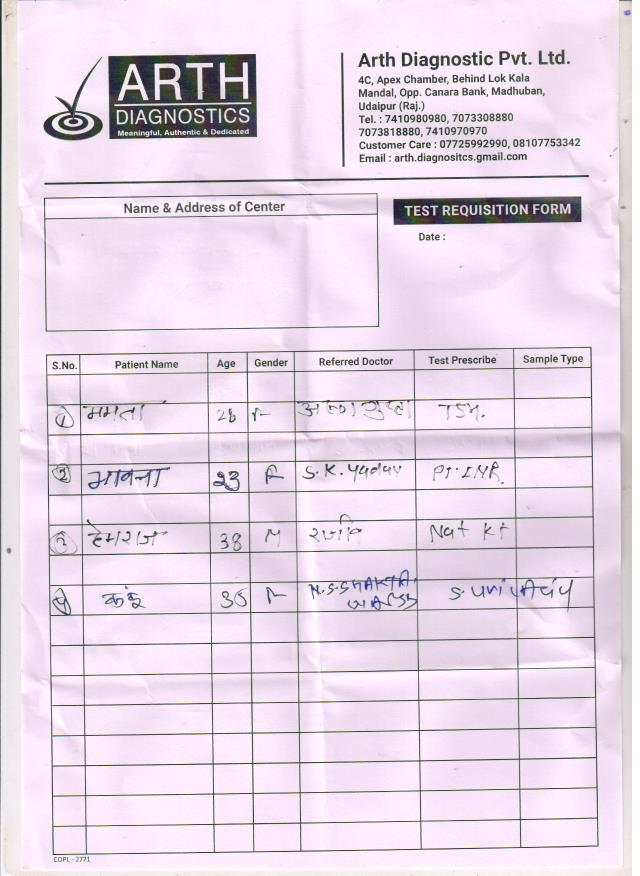 ARTH
DIAGNOSTICS
Meaningful, Authentic & Dedicated
Arth Diagnostic Pvt. Ltd.
4C, Apex Chamber, Behind Lok Kala
Mandal, Opp. Canara Bank, Madhuban,
Udaipur (Raj.)
Tel. : 7410980980, 7073308880
7073818880, 7410970970
Customer Care : 07725992990, 08107753342
Email : arth.diagnositcs.gmail.com
Name & Address of Center
TEST REQUISITION FORM
Date :
S.No. Patient Name Age Gender Referred Doctor Test Prescribe Sample Type
1 ममता 28 F TSH.
2 भावना 23 F S.K. Yadav PT. INR.
3 हेमराज 38 M Na+ K+
4 F S. Uric Acid
COPL - 2771